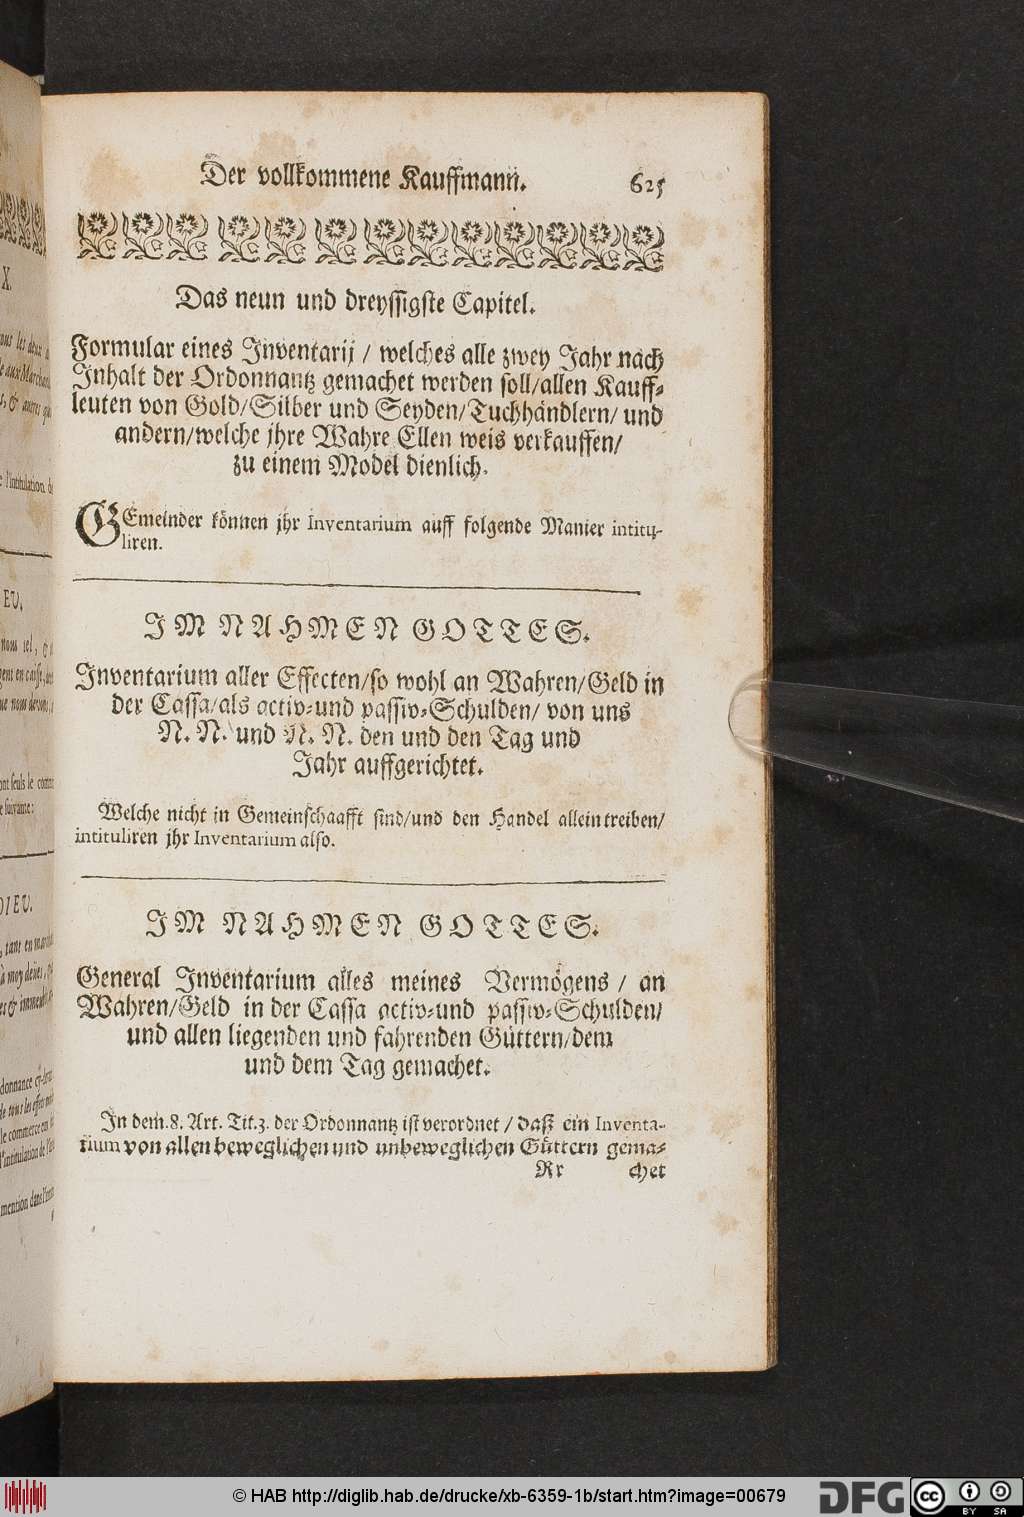 Der vollkommene Kauffmann. 625
Das neun und dreyssigste Capitel.
Formular eines Inventarij / welches alle zwey Jahr nach
Inhalt der Ordonnantz gemachet werden soll/allen Kauff-
leuten von Gold/Silber und Seyden/Tuchhändlern/ und
andern/welche jhre Wahre Ellen weis verkauffen/
zu einem Model dienlich.
GEmeinder können jhr Inventarium auff folgende Manier intitu-
liren.
IM NAHMEN GOTTES.
Inventarium aller Effecten/so wohl an Wahren/Geld in
der Cassa/als activ-und passiv-Schulden/ von uns
N. N. und N. N. den und den Tag und
Jahr auffgerichtet.
Welche nicht in Gemeinschaafft sind/und den Handel allein treiben/
intituliren jhr Inventarium also.
IM NAHMEN GOTTES.
General Inventarium alles meines Vermögens / an
Wahren/Geld in der Cassa activ-und passiv-Schulden/
und allen liegenden und fahrenden Güttern/dem
und dem Tag gemachet.
In dem 8. Art. Tit.3. der Ordonnantz ist verordnet / daß ein Inventa-
rium von allen beweglichen und unbeweglichen Güttern gema-
Rr chet
© HAB http://diglib.hab.de/drucke/xb-6359-1b/start.htm?image=00679
DFG cc BY SA